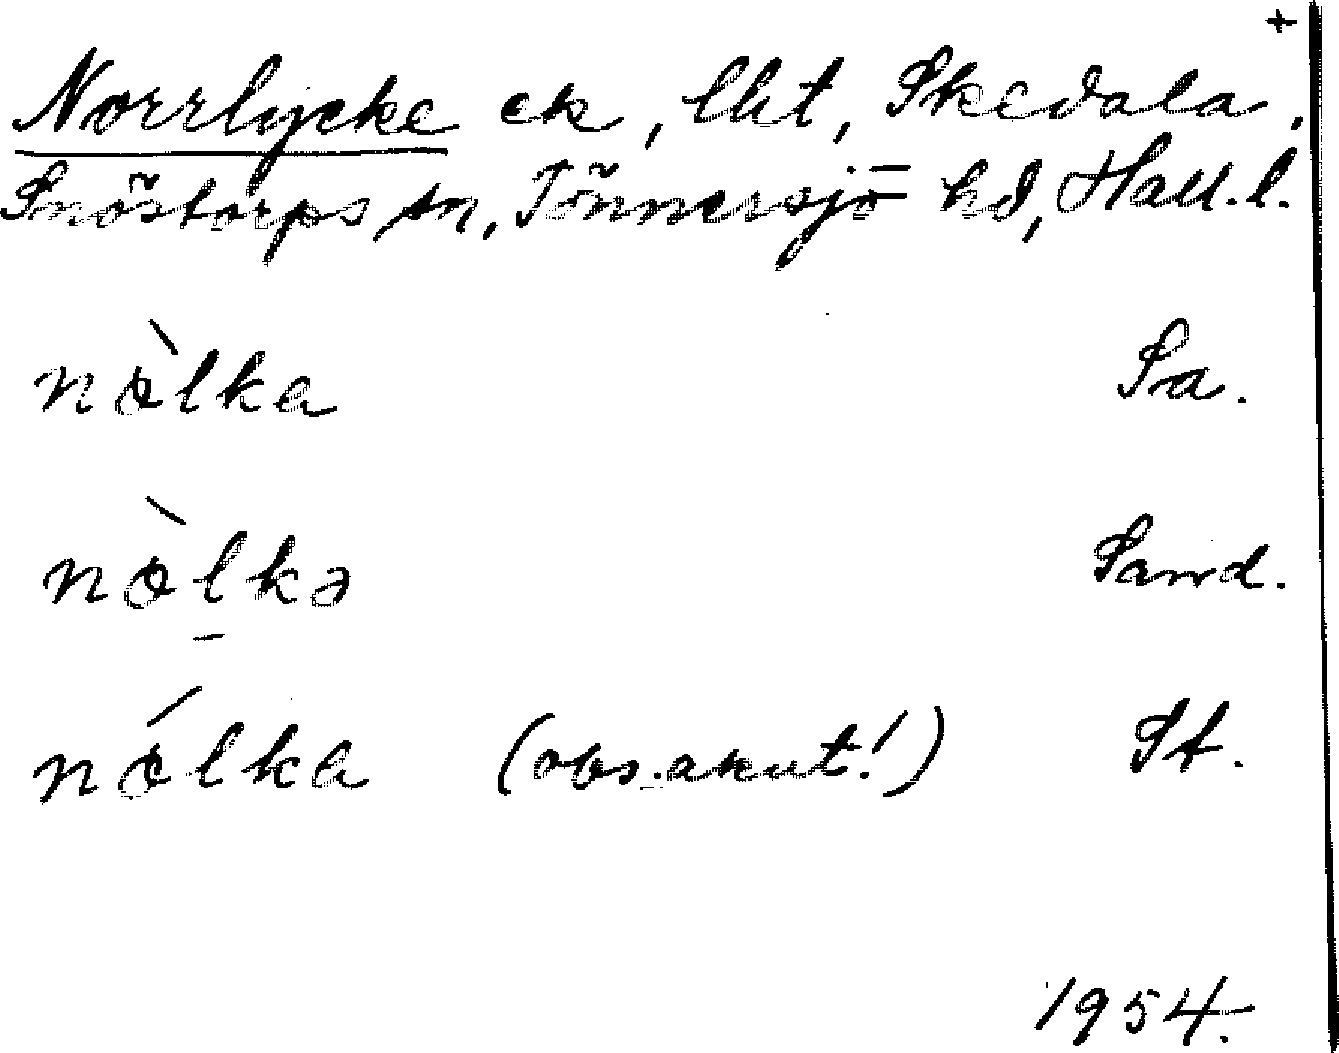 +
Norrlycke ek, lht, Skedala,
Snöstorps sn, Tönnersjö hd, Hall. l.
nòlka Sa.
nòlkə Sand.
nólka (obs. akut!) St.
1954.